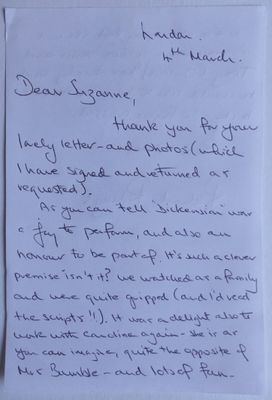 London.
4th March.
Dear Suzanne,
thank you for your
lovely letter - and photos (which
I have signed and returned as
requested).
As you can tell 'Dickensian' was
a joy to perform, and also an
honour to be part of. It's such a clever
premise isn't it? We watched as a family
and were quite gripped (and I'd read
the scripts!!). It was a delight also to
work with Caroline again - she is as
you can imagine, quite the opposite of
Mrs Bumble - and lots of fun.